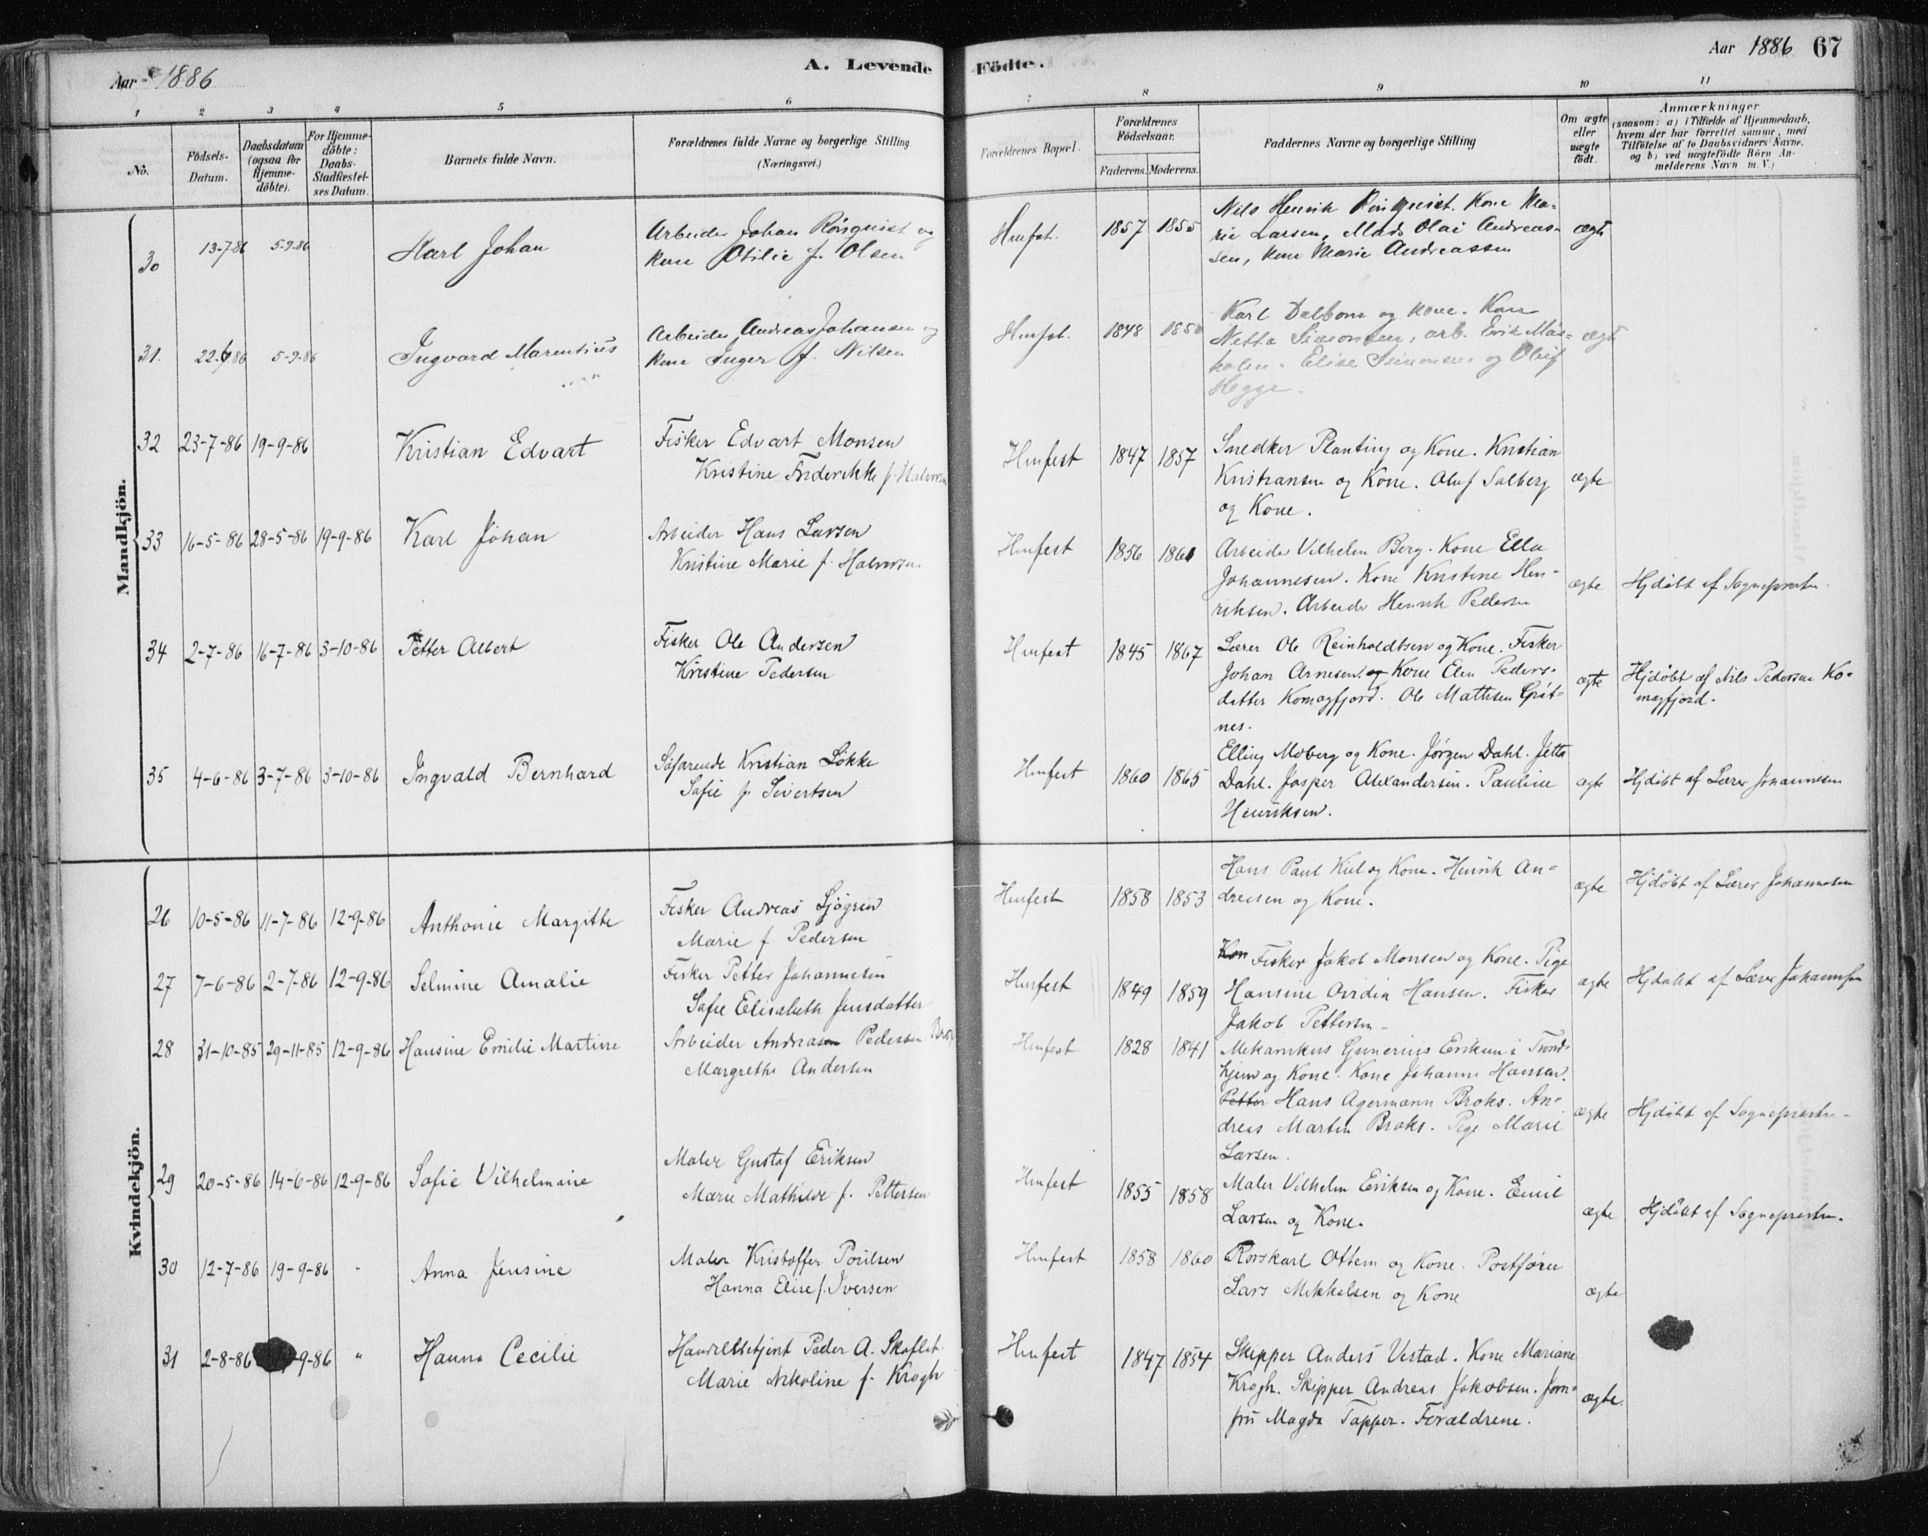 Aar 1886
A. Levende Födte.
Aar 1886 67
1 2 3 4 5 6 7 8 9 10 11
No.
Födsels-Datum.
Daabsdatum (ogsaa for Hjemme-döbte).
For Hjemme-döbte: Daabs-Stadfæstel-ses Datum.
Barnets fulde Navn.
Forældrenes fulde Navne og borgerlige Stilling (Næringsvei.)
Forældrenes Bopæl.
Forældrenes Födselsaar.
Faderens. Moderens.
Faddernes Navne og borgerlige Stilling
Om ægte eller uægte födt.
Anmærkninger
(saasom: a) i Tilfælde af Hjemmedaab,
hvem der har forrettet samme, med
Tilföielse af to Daabsvidners Navne,
og b) ved uægtefödte Börn An-
melderens Navn m. V.)
Mandkjön.
30 13-7-86 5-9-86 Karl Johan
Arbeider Johan Rönquist og
Kone Otilie f. Olsen
Hmfst. 1857 1855
Nils Henrik Rönquist. Kone Ma-
rie Larsen, Mads Olai Andreas-
sen, Kone Marie Andreassen
ægte
31. 22-6-86 5-9-86 Ingvard Marentius
Arbeider Andreas Johansen og
Kone Inger f. Nilsen
Hmfst. 1848 1850
Karl Dalbom og Kone. Kone
Netta Simonsen, arb. Erik Mas-
holm. Elise Simonsen og Oluf
Hegge.
ægte
32 23-7-86 19-9-86 Kristian Edvart
Fisker Edvart Monsen
Kristine Friderikke f. Halvorsen
Hmfest 1847 1857
Snedker Planting og Kone. Kristian
Kristiansen og Kone. Oluf Solberg
og Kone.
ægte
33 16-5-86 28-5-86 19-9-86 Karl Johan
Arbeider Hans Larsen
Kristine Marie f. Halvorsen
Hmfest 1856 1861
Arbeider Vilhelm Berg. Kone Ella
Johannesen. Kone Kristine Hen-
riksen. Arbeider Henrik Pedersen
ægte
Hjdöbt af Sognepresten.
34 2-7-86 16-7-86 3-10-86 Petter Albert
Fisker Ole Andersen
Kristine Pedersen
Hmfest 1845 1867
Lærer Ole Reinholdtsen og Kone. Fisker
Johan Arnesen og Kone Elen Peders-
datter Komagfjord. Ole Mathisen Gröt-
nes.
ægte
Hjdöbt af Nils Pedersen Ko-
magfjord.
35 4-6-86 3-7-86 3-10-86 Ingvald Bernhard
Söfarende Kristian Lökke
Sofie f. Sivertsen
Hmfest 1860 1865
Elling Moberg og Kone. Jörgen Dahl. Jetta
Dahl. Jesper Alexandersen. Pauline
Henriksen.
ægte
Hjdöbt af Lærer Johannesen
Kvindekjön.
26 10-5-86 11-7-86 12-9-86 Anthonie Margitte
Fisker Andreas Sjögren
Marie f. Pedersen
Hmfest 1858 1853
Hans Paul Kiel og Kone. Henrik An-
dreesen og Kone.
ægte
Hjdöbt af Lærer Johannesen
27 7-6-86 2-7-86 12-9-86 Selmine Amalie
Fisker Petter Johannesen
Sofie Elisabeth Jensdatter
Hmfest 1849 1859
Kon Fisker Jakob Monsen og Kone. Pige
Hansine Ovidia Hansen. Fisker
Jakob Pettersen
ægte
Hjdöbt af Lærer Johannesen
28 31-10-85 29-11-85 12-9-86 Hansine Emilie Martine
Arbeider Andreasen Pedersen
Margrethe Andersen
Hmfest 1828 1841
Mekanikus Gunerius Eriksen i Trond-
hjem og Kone. Kone Johanne Hansen.
Petter Hans Agermann Broks. An-
dreas Martin Broks. Pige Marie
Larsen.
ægte
Hjdöbt af Sognepresten
29 20-5-86 14-6-86 12-9-86 Sofie Vilhelmine
Maler Gustaf Eriksen
Marie Mathilde f. Pettersen
Hmfest 1855 1858
Maler Vilhelm Eriksen og Kone. Emil
Larsen og Kone.
ægte
Hjdöbt af Sognepresten.
30 12-7-86 19-9-86 " Anna Jensine
Maler Kristoffer Poulsen
Hanna Elise f. Iversen
Hmfest 1858 1860
Rorskarl Ottem og Kone. Postförer
Lars Mikkelsen og Kone
ægte
31 2-8-86 9-86 " Hanna Cecilie
Peder A. Skoflst.
Marie Nikoline f. Krogh
Hmfest 1847 1854
Skipper Anders Vestad. Kone Mariane
Krogh. Skipper Andreas Jakobsen. Jom-
fru Magda Tapper. Forældrene.
ægte.